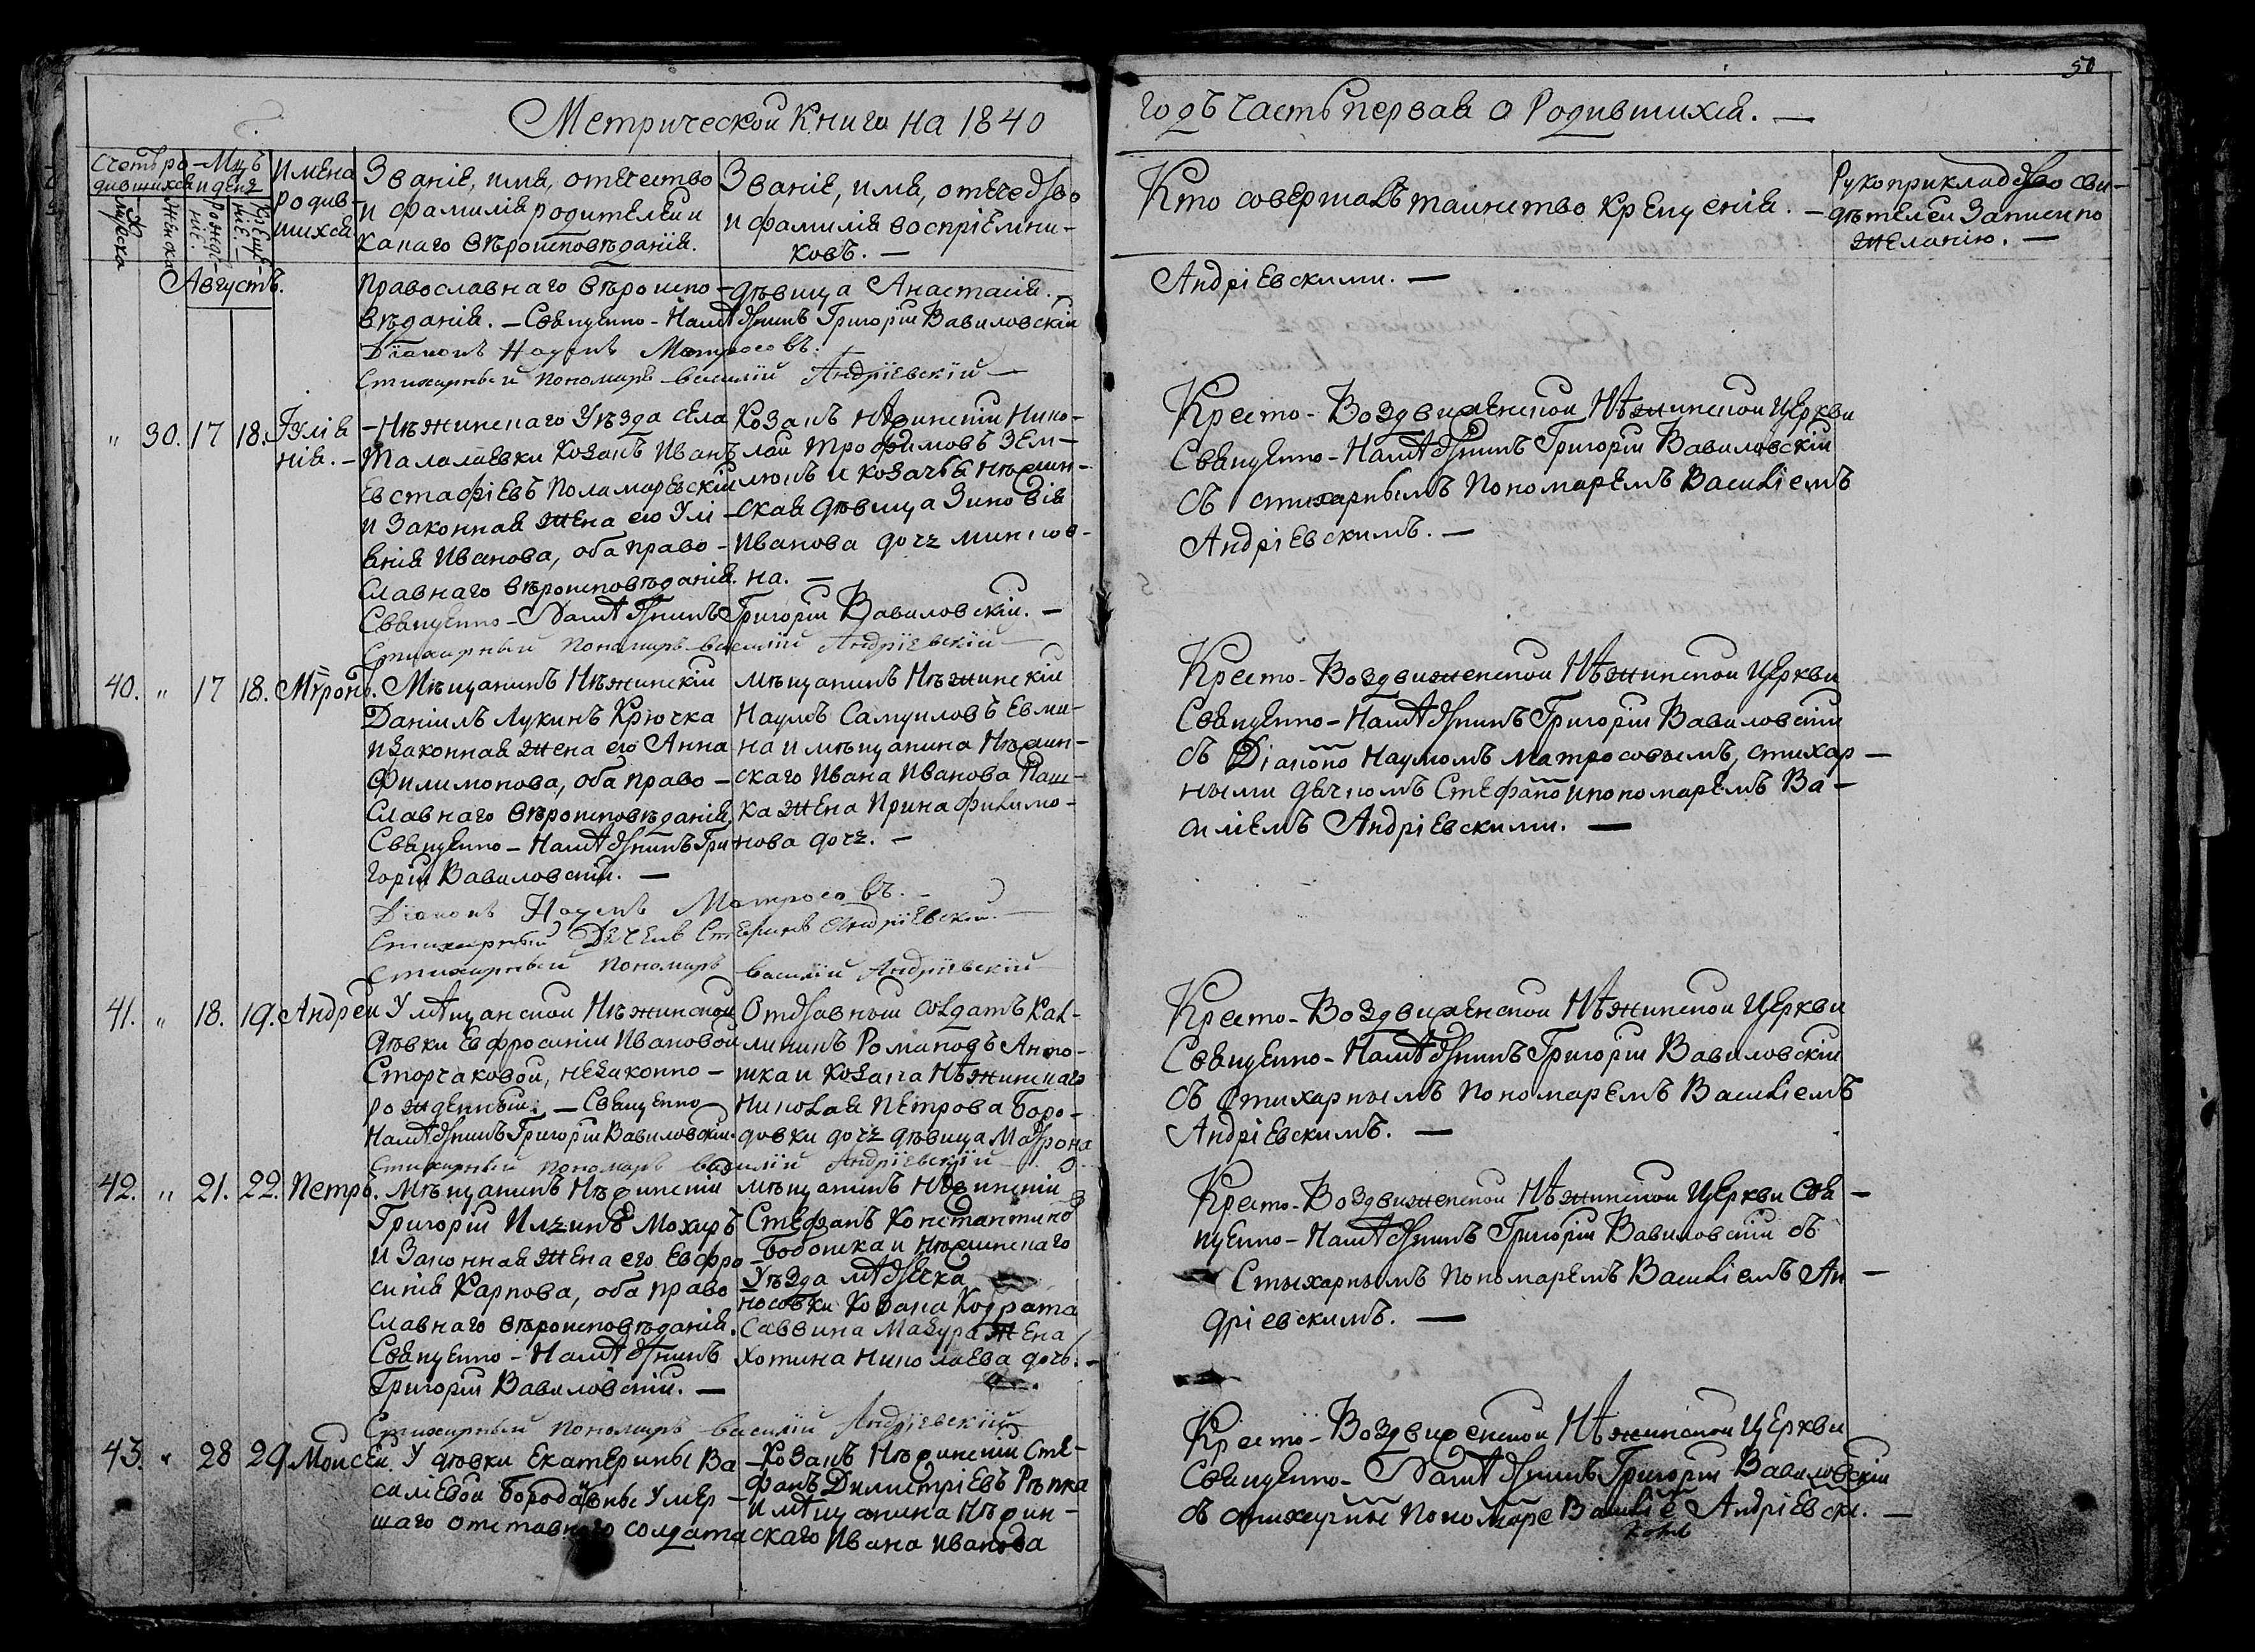 50
Метрической Книги на 1840
годъ часть первая о Родившихся. —
Счетъ ро-
дившихся
Мцъ
и день
Имена
родив-
шихся
Званіе, имя, отечество
и фамилія родителей и
какаго вѣроисповѣданія.
Званіе, имя, отечество
и фамилія воспріемни-
ковъ. —
Кто совершалъ таинство крещенія. —
Рукоприкладство сви-
дѣтелей записи по
желанію. —
Мужеска
Женска
Рожде-
ніе.
Креще-
ніе.
Августъ.
Православнаго вѣроиспо-
вѣданія. — Священно-Намѣстникъ Григорій Вавиловскій
Діаконъ Наумъ Матросовъ.
Стихарный пономарь Василій Андріевскій —
дѣвица Анастасія. —
Андріевскими. —
" 30. 17 18. Іулія
нія. —
Нѣжинскаго Уѣзда села
Талалаевки Козакъ Иванъ
Евстафіевъ Поламаревскій
и Законная жена его Улі-
янія Иванова, оба право-
славнаго вѣроисповѣданія.
Священно-Намѣстникъ Григорій Вавиловскій. —
Стихарный пономарь Василій Андріевскій —
Козакъ Нѣжинскій Нико-
лай Трофимовъ Зем-
люкъ и козачья нѣжин-
ская дѣвица Зиновія
Иванова дочь
на. —
Кресто-Воздвиженской Нѣжинской Церкви
Священно-Намѣстникъ Григорій Вавиловскій
съ стихарнымъ Пономаремъ Василіемъ
Андріевскимъ. —
40. " 17 18. Мѵронъ.
Мѣщанинъ Нѣжинскій
Даніилъ Лукинъ Крючка
и законная жена его Анна
Филимонова, оба право-
славнаго вѣроисповѣданія.
Священно-Намѣстникъ Гри-
горій Вавиловскій. —
Діаконъ Наумъ Матросовъ. —
Стихарный Дьячекъ Стефанъ Андріевскій. —
Стихарный пономарь Василій Андріевскій —
мѣщанинъ Нѣжинскій
Наумъ Самуиловъ Евми-
на и мѣщанина Нѣжин-
скаго Ивана Иванова Паш-
ка жена Ирина Филимо-
нова дочь. —
Кресто-Воздвиженской Нѣжинской Церкви
Священно-Намѣстникъ Григорій Вавиловскій
съ Діаконо Наумомъ Матросовымъ, стихар-
ными дьячкомъ Стефано и пономаремъ Ва-
силіемъ Андріевскими. —
41. " 18. 19. Андрей
У мѣщанской Нѣжинской
дѣвки Евфросиніи Ивановой
Сторчаковой, незаконно-
рожденный. — Священно
Намѣстникъ Григорій Вавиловскій.
Стихарный пономарь Василій Андріевскій —
Отставный солдатъ Кал-
линикъ Романовъ Анто-
шка и козака Нѣжинскаго
Николая Петрова Боро-
довки дочь дѣвица Матрона
Кресто-Воздвиженской Нѣжинской Церкви
Священно-Намѣстникъ Григорій Вавиловскій
съ Стихарнымъ Пономаремъ Василіемъ
Андріевскимъ. —
42. " 21. 22. Петръ.
Мѣщанинъ Нѣжинскій
Григорій Ильинъ Мохиръ
и Законная жена его Евфро-
синія Карпова, оба право
славнаго вѣроисповѣданія.
Священно-Намѣстникъ
Григорій Вавиловскій. —
Стихарный пономарь Василій Андріевскій
мѣщанинъ Нѣжинскій
Стефанъ Константино
Бобошка и Нѣжинскаго
Уѣзда мѣстечка
Носовки Козака Кодрата
Саввина Мазура жена
Хотина Николаева дочь. —
Кресто-Воздвиженской Нѣжинской Церкви Свя-
щенно-Намѣстникъ Григорій Вавиловскій съ
Стихарнымъ пономаремъ Василіемъ Ан-
дріевскимъ. —
43. " 28 29 Моисей.
У дѣвки Екатерины Ва-
силіевой Бородавны Умер-
шаго отставнаго солдата
Козакъ Нѣжинскій Сте-
фанъ Димитріевъ Рѣпка
и мѣщанина Нѣжин-
скаго Ивана Иванова
Кресто-Воздвиженской Нѣжинской Церкви
Священно-Намѣстникъ Григорій Вавиловскій
съ стихарны Пономаре Василіе Андріевски. —